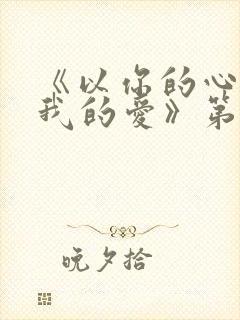 《以你的心
我的爱》第
晚夕拾